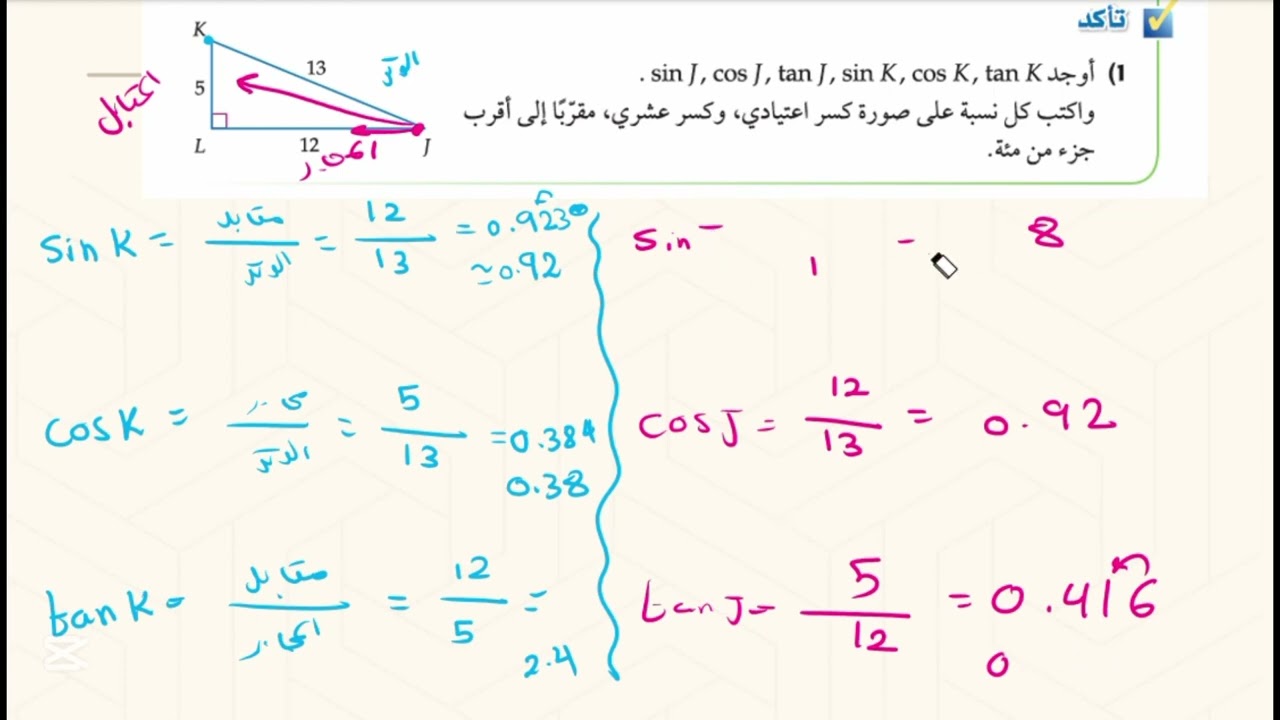 تأكد
1) أوجد sin J, cos J, tan J, sin K, cos K, tan K .
واكتب كل نسبة على صورة كسر اعتيادي، وكسر عشري، مقرّبًا إلى أقرب
جزء من مئة.
K
13
5
L
12
J
الوتر
المقابل
المجاور
sin K = مقابل / الوتر = 12 / 13 = 0.923
≈ 0.92
cos K = / الوتر = 5 / 13 = 0.384
0.38
tan K = مقابل / المجاور = 12 / 5 =
2.4
sin
1
8
cos J = 12 / 13 = 0.92
tan J = 5 / 12 = 0.416
0